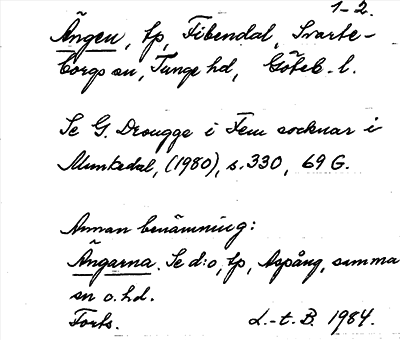 1-2.
Ängen, tp, Fibendal, Svarte-
borgs sn, Tunge hd, Göteb.l.
Se G. Drougge i Fem socknar i
Munkedal, (1980), s. 330, 69 G.
Annan benämning:
Ängarna. Se d:o, tp, Aspång, samma
sn o. hd.
Forts. L.-t. B. 1984.